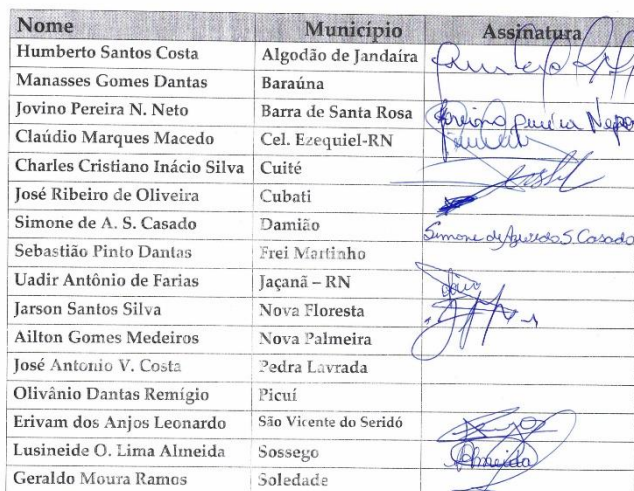 Nome Município Assinatura
Humberto Santos Costa Algodão de Jandaíra
Manasses Gomes Dantas Baraúna
Jovino Pereira N. Neto Barra de Santa Rosa Jovino Pereira
Claúdio Marques Macedo Cel. Ezequiel-RN
Charles Cristiano Inácio Silva Cuité
José Ribeiro de Oliveira Cubati
Simone de A. S. Casado Damião Simone de Azevedo S. Casado
Sebastião Pinto Dantas Frei Martinho
Uadir Antônio de Farias Jaçanã – RN
Jarson Santos Silva Nova Floresta
Ailton Gomes Medeiros Nova Palmeira
José Antonio V. Costa Pedra Lavrada
Olivânio Dantas Remígio Picuí
Erivam dos Anjos Leonardo São Vicente do Seridó
Lusineide O. Lima Almeida Sossego Almeida
Geraldo Moura Ramos Soledade